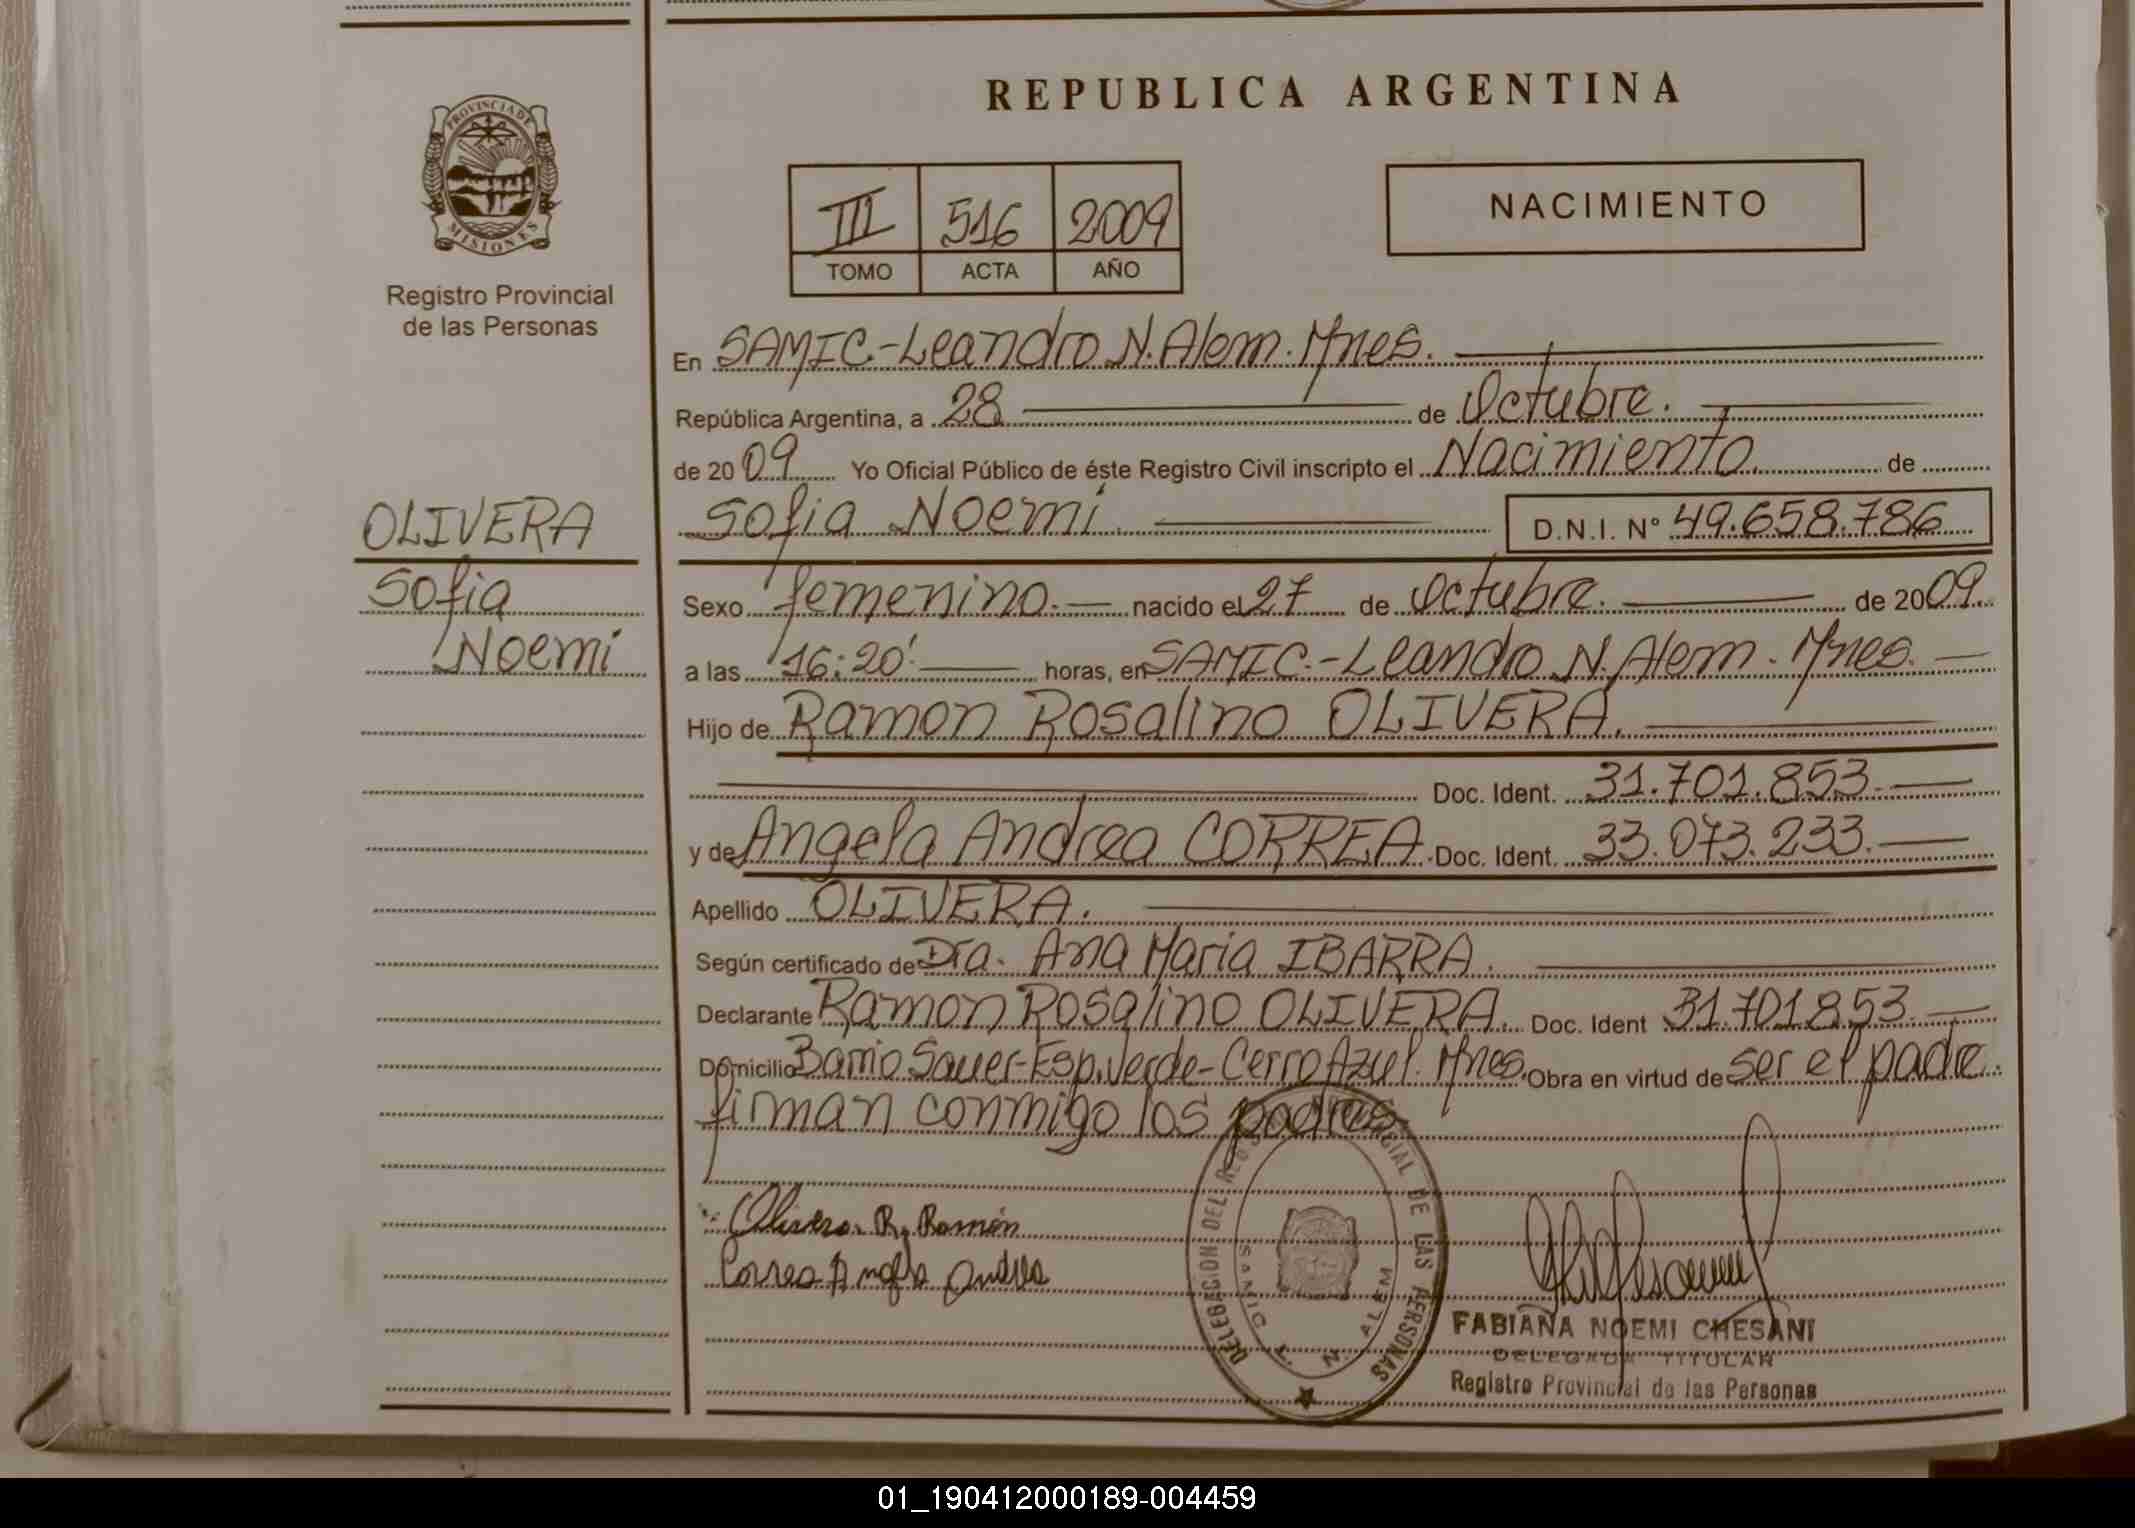 REPUBLICA ARGENTINA
PROVINCIA DE
MISIONES
Registro Provincial
de las Personas
III 516 2009
TOMO ACTA AÑO
NACIMIENTO
En SAMIC.-Leandro N. Alem. Mnes.
República Argentina, a 28 de Octubre.
de 2009 Yo Oficial Público de éste Registro Civil inscripto el Nacimiento de
OLIVERA
Sofia
Noemi
Sofia Noemi. D.N.I. N° 49.658.786
Sexo femenino. nacido el 27 de Octubre. de 2009.
a las 16:20'. horas, en SAMIC.-Leandro N. Alem. Mnes.
Hijo de Ramon Rosalino OLIVERA.
Doc. Ident. 31.701.853.
y de Angela Andrea CORREA. Doc. Ident. 33.073.233.
Apellido OLIVERA.
Según certificado de Dra. Ana Maria IBARRA.
Declarante Ramon Rosalino OLIVERA. Doc. Ident 31.701.853.
Domicilio Barrio Sauer-Esp.Verde-Cerro Azul. Mnes. Obra en virtud de ser el padre.
firman conmigo los padres
Olivera R. Ramón
Correa Angela Andrea
DELEGACION DEL REGISTRO PROVINCIAL DE LAS PERSONAS
SAMIC L. N. ALEM
FABIANA NOEMI CHESANI
DELEGADA TITULAR
Registro Provincial de las Personas
01_190412000189-004459